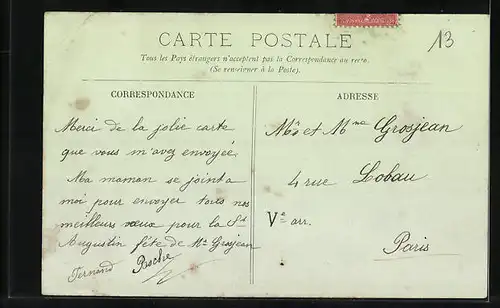 13
CARTE POSTALE
Tous les Pays étrangers n'acceptent pas la Correspondance au recto.
(Se renseigner à la Poste).
CORRESPONDANCE
Merci de la jolie carte
que vous m'avez envoyée.
Ma maman se joint a
moi pour envoyer tous nos
meilleurs vœux pour la St
Augustin fête de Mr Grosjean
Fernand Roche
ADRESSE
Mr et Mme Grosjean
4 rue Lobau
Ve arr.
Paris